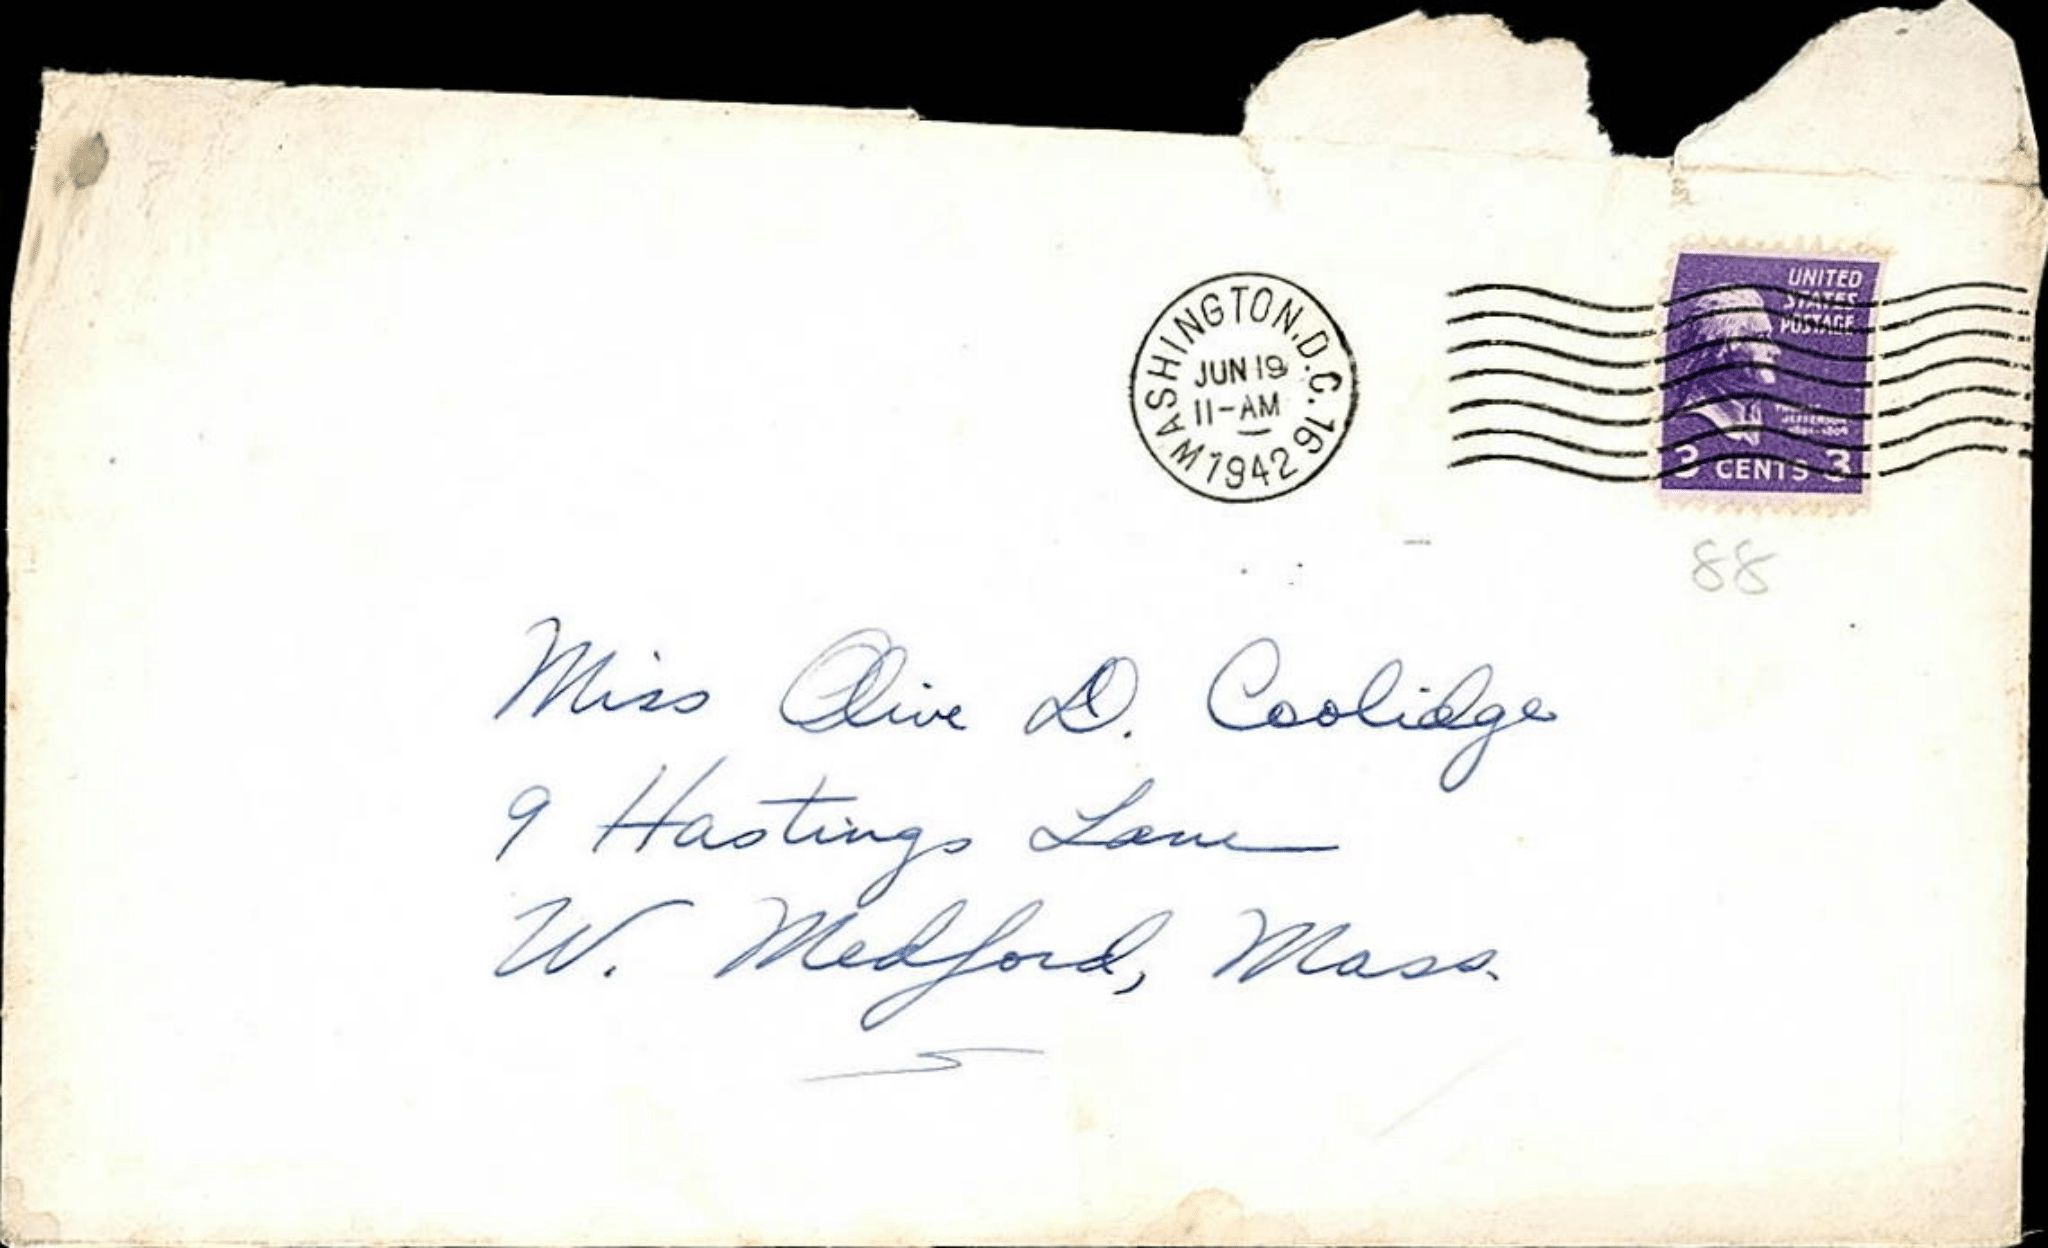 WASHINGTON, D.C. 16
JUN 19
11-AM
1942
UNITED
STATES
POSTAGE
JEFFERSON
3 CENTS 3
88
Miss Olive D. Coolidge
9 Hastings Lane
W. Medford, Mass.